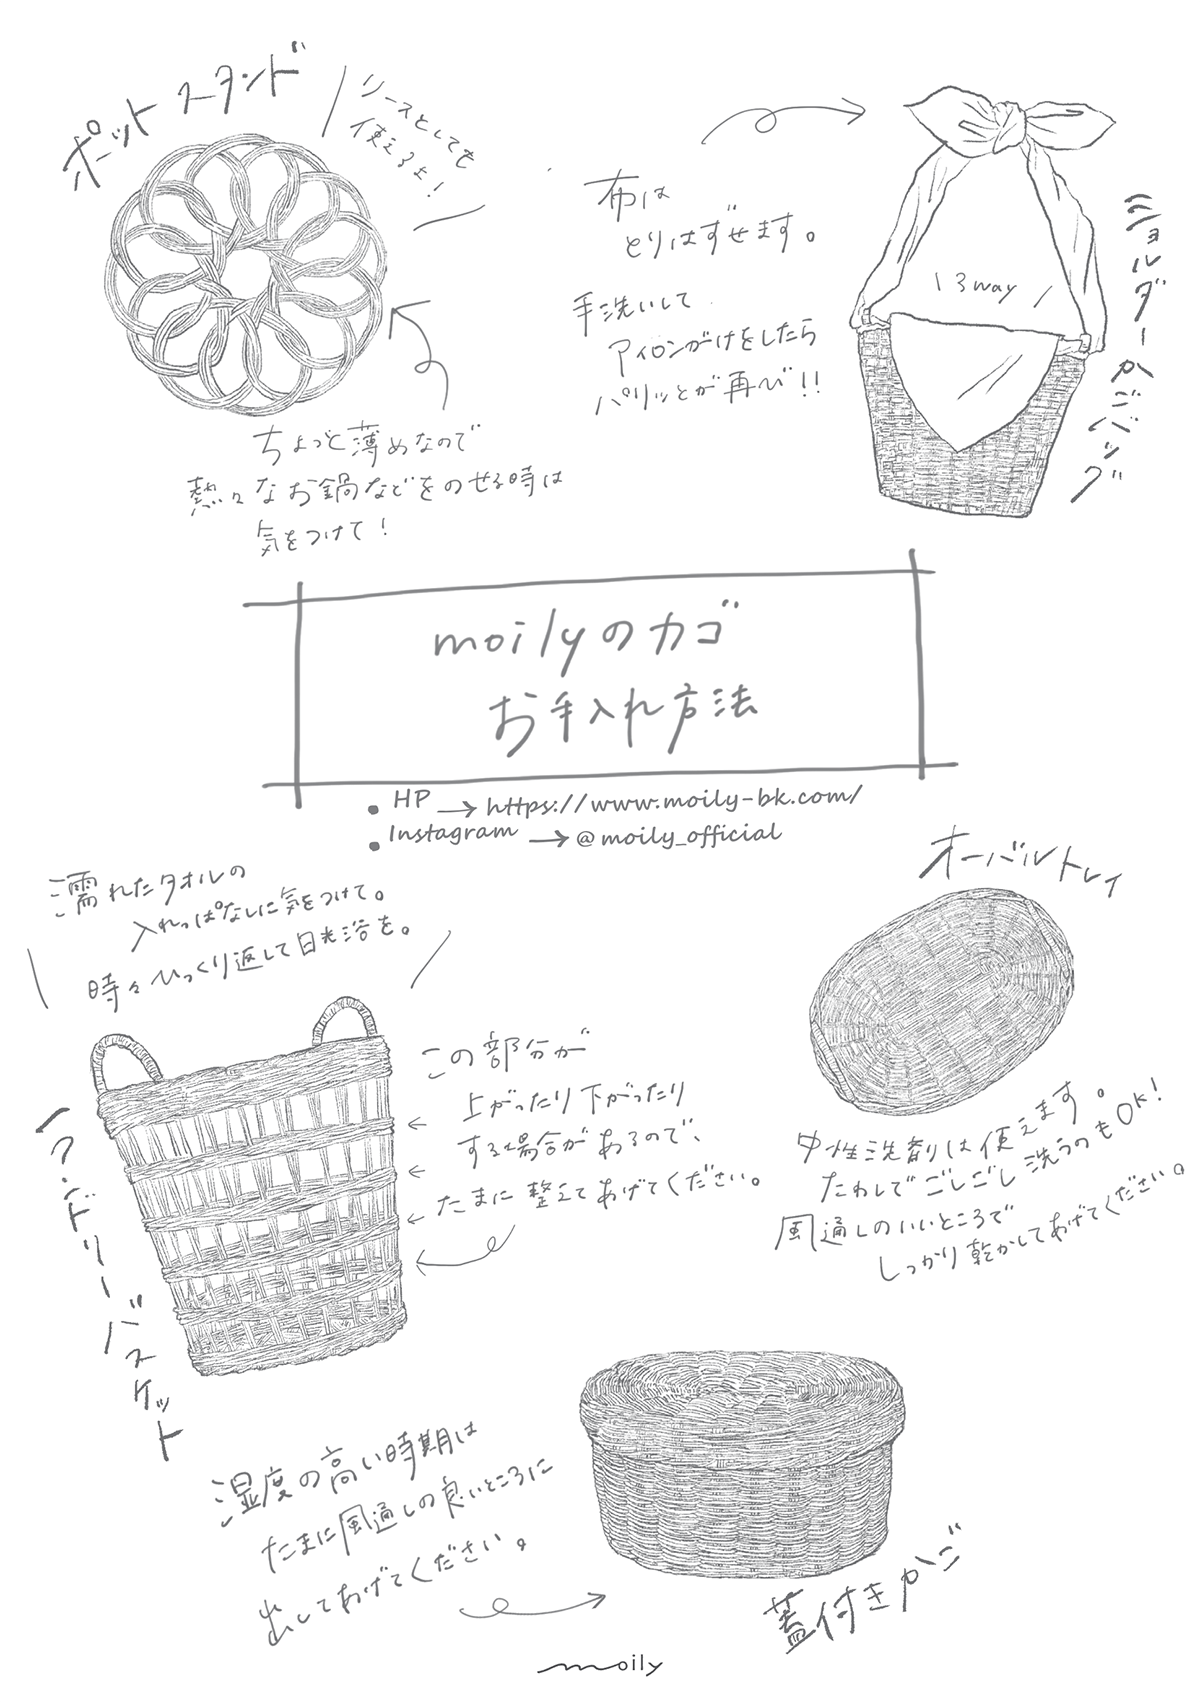 ポットスタンド
リースとしても
使えるよ！
ちょっと薄めなので
熱々なお鍋などをのせる時は
気をつけて！
布は
とりはずせます。
手洗いして
アイロンがけをしたら
パリッとが再び！！
3way
ショルダーかごバッグ
moilyのカゴ
お手入れ方法
• HP → https://www.moily-bk.com/
• Instagram → @moily_official
濡れたタオルの
入れっぱなしに気をつけて。
時々ひっくり返して日光浴を。
この部分が
上がったり下がったり
する場合があるので、
たまに整えてあげてください。
ランドリーバスケット
オーバルトレイ
中性洗剤は使えます。
たわしでごしごし洗うのもOK！
風通しのいいところで
しっかり乾かしてあげてください。
湿度の高い時期は
たまに風通しの良いところに
出してあげてください。
蓋付きかご
moily